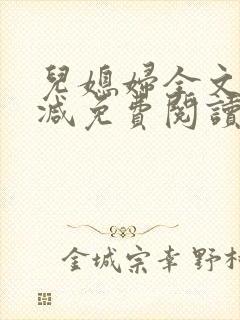 兒媳婦全文
減免費閱讀
金城宗幸野村